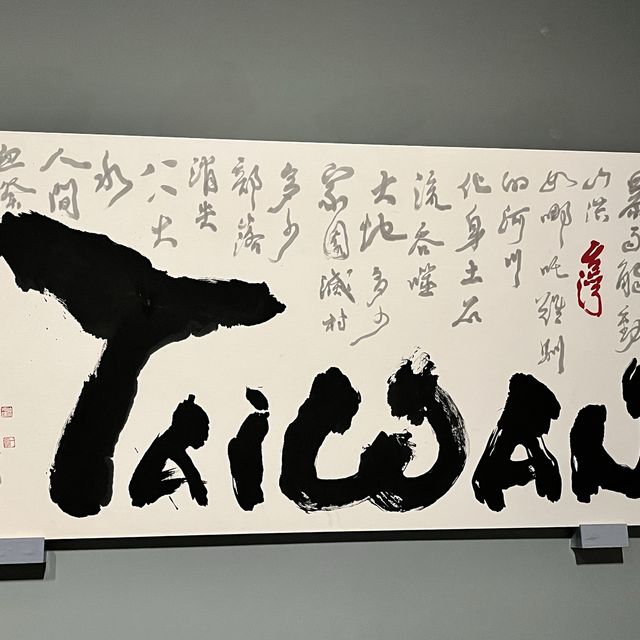 山洪
如哪吒
的河川
化身土石
流吞噬
大地多少
家園滅村
多少
部落
消失
八八大
水
人間
台灣
TAiWAN